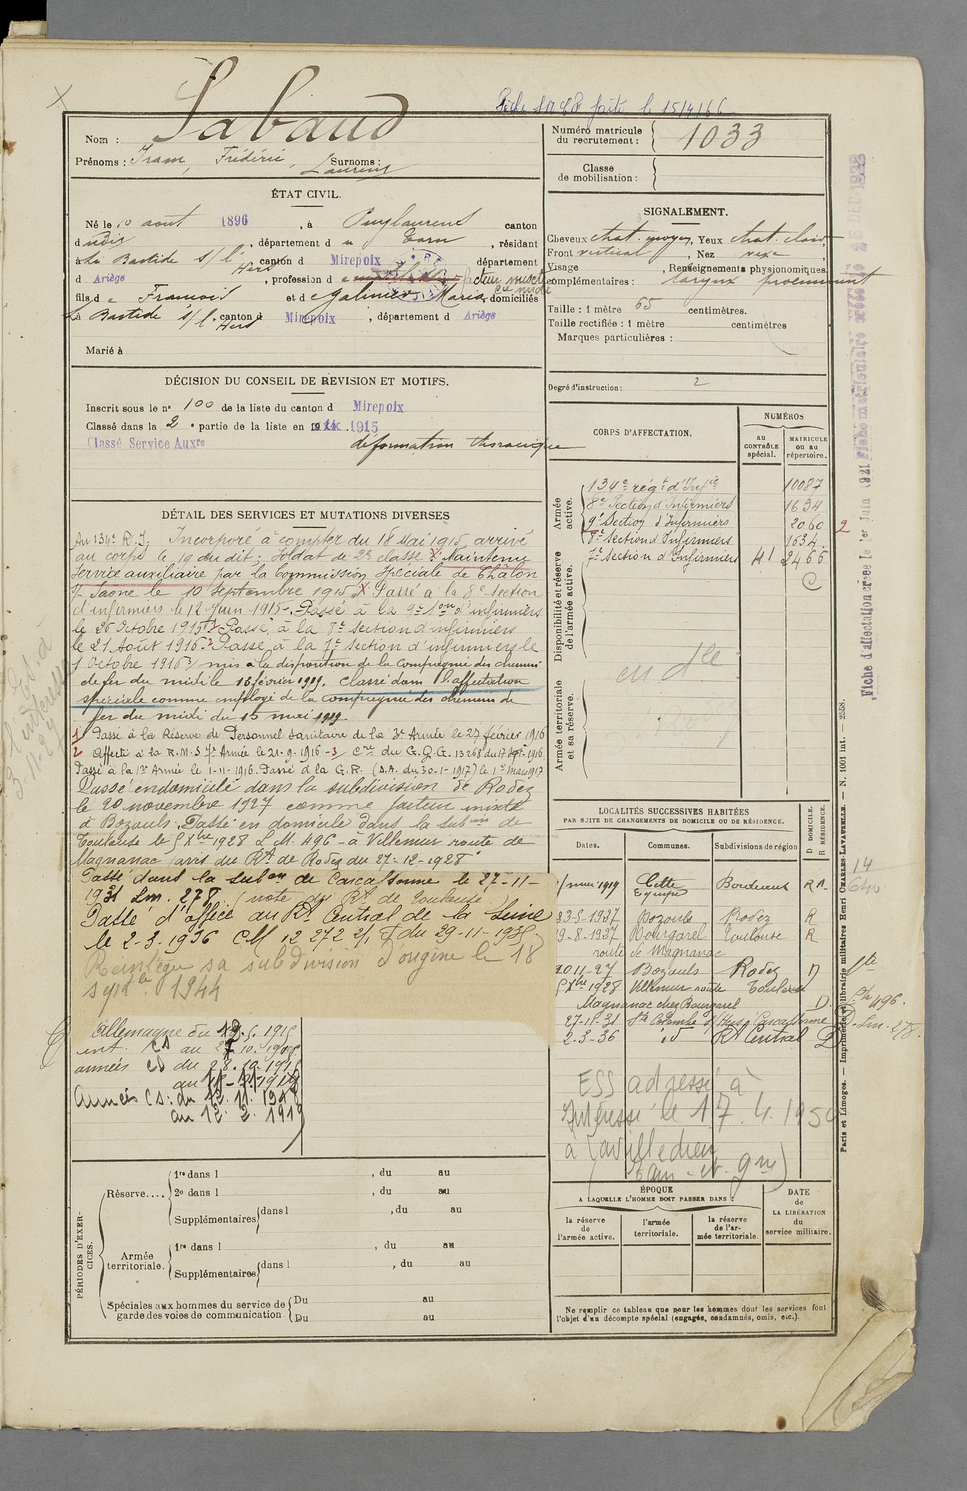 Fiche faite le 15/4/66
Nom : Labaud
Prénoms : Frédéric, Surnoms :
Laurens
Numéro matricule
du recrutement : 1033
Classe
de mobilisation :
ÉTAT CIVIL.
Né le 10 août 1896, à Puylaurens canton
dudit, département du Tarn, résidant
à La Bastide s/l'Hers, canton d Mirepoix département
d Ariège, profession d
fils de François et de Galinier Maria, domiciliés
à La Bastide s/l'Hers, canton d Mirepoix, département d Ariège
Marié à
SIGNALEMENT.
Cheveux chat. moyen, Yeux chat. clair,
Front vertical, Nez
Visage, Renseignements physionomiques
complémentaires : larynx proéminent
Taille : 1 mètre 65 centimètres.
Taille rectifiée : 1 mètre centimètres
Marques particulières :
Degré d'instruction : 2
DÉCISION DU CONSEIL DE REVISION ET MOTIFS.
Inscrit sous le n° 100 de la liste du canton d Mirepoix
Classé dans la 2e partie de la liste en 1915
Classé Service Auxre déformation thoracique
CORPS D'AFFECTATION.
NUMÉROS
au CONTRÔLE spécial.
MATRICULE ou au répertoire.
Armée active.
134e régt d'Infie 10087
8e Section d'Infirmiers 1634
9e Section d'Infirmiers 2060
8e Section d'Infirmiers 1634
7e Section d'Infirmiers 41 2466
Disponibilité et réserve de l'armée active.
Armée territoriale et sa réserve.
DÉTAIL DES SERVICES ET MUTATIONS DIVERSES
Au 134e R.I. Incorporé à compter du 18 Mai 1915, arrivé
au corps le 19 du dit : Soldat de 2e classe. Maintenu
Service auxiliaire par la Commission Spéciale de Châlon
s/ Saone le 10 Septembre 1915. Passé à la 8e Section
d'infirmiers le 12 Juin 1915. Passé à la 9e Son d'infirmiers
le 26 Octobre 1915. Passé à la 8e Section d'infirmiers
le 21 Août 1916. Passé à la 7e section d'infirmiers le
1 Octobre 1916. mis à la disposition de la Compagnie des chemins
de fer du midi le 16 février 1919. Classé dans l'affectation
spéciale comme employé de la compagnie des chemins de
fer du midi du 15 mai 1919.
1 Passé à la Réserve de Personnel Sanitaire de la 3e Armée le 27 février 1916
2 Affecté à la R.M.S 7e Armée le 21-9-1916 -3
Passé à la 1re Armée le 1-11-1916. Passé à la G.R. (D.A. du 30-1-1917) le 1er Mars 1917
Passé en domicile dans la subdivision de Rodez
le 20 novembre 1927 comme facteur mixte
à Bozouls. Passé en domicile dans la subon de
Toulouse le 5 Xbre 1928 L.M. 496 - à Villemur route de
Magnanac (avis du Rt de Rodez du 27-12-1928
Passé dans la subon de Carcassonne le 27-11-
1931 Lm. 278 (note du Rt de Toulouse)
Passé d'office au Rt Central de la Seine
le 2-3-1936 CM 12 272 2/1 du 29-11-1935
Réintègre sa subdivision d'origine le 18
septbre 1944
Allemagne du
int. CD au
années CD du 28.10.1915
au
Années CS : du 12.11.1918
au 12.2.1919
LOCALITÉS SUCCESSIVES HABITÉES
PAR SUITE DE CHANGEMENTS DE DOMICILE OU DE RÉSIDENCE.
Dates. Communes. Subdivisions de région D DOMICILE. R RÉSIDENCE.
1919 Cette Bordeaux
Bozouls Rodez R
Bourgarel Toulouse R
route de Magnanac
20 11-27 Bozouls Rodez D
5 Xbre 1928 Villemur route Toulouse
Magnanac chez Bourgarel D
27-11-31 Ste Colombe s/Hers Carcassonne
2-3-36 Rt Central D
ESS adressé à
Intéressé le 17.4.1950
à Lavilledieu
(Tarn-et-Gne)
ÉPOQUE
A LAQUELLE L'HOMME DOIT PASSER DANS :
la réserve de l'armée active.
l'armée territoriale.
la réserve de l'armée territoriale.
DATE de LA LIBÉRATION du service militaire.
Ne remplir ce tableau que pour les hommes dont les services font
l'objet d'un décompte spécial (engagés, condamnés, omis, etc.).
PÉRIODES D'EXERCICES.
Réserve....
1re dans l , du au
2e dans l , du au
Supplémentaires dans l , du au
Armée territoriale.
1re dans l , du au
Supplémentaires dans l , du au
Spéciales aux hommes du service de
garde des voies de communication
Du au
Du au
Paris et Limoges. — Imprimerie et librairie militaires Henri CHARLES-LAVAUZELLE. — N. 1001 int. — 2558.